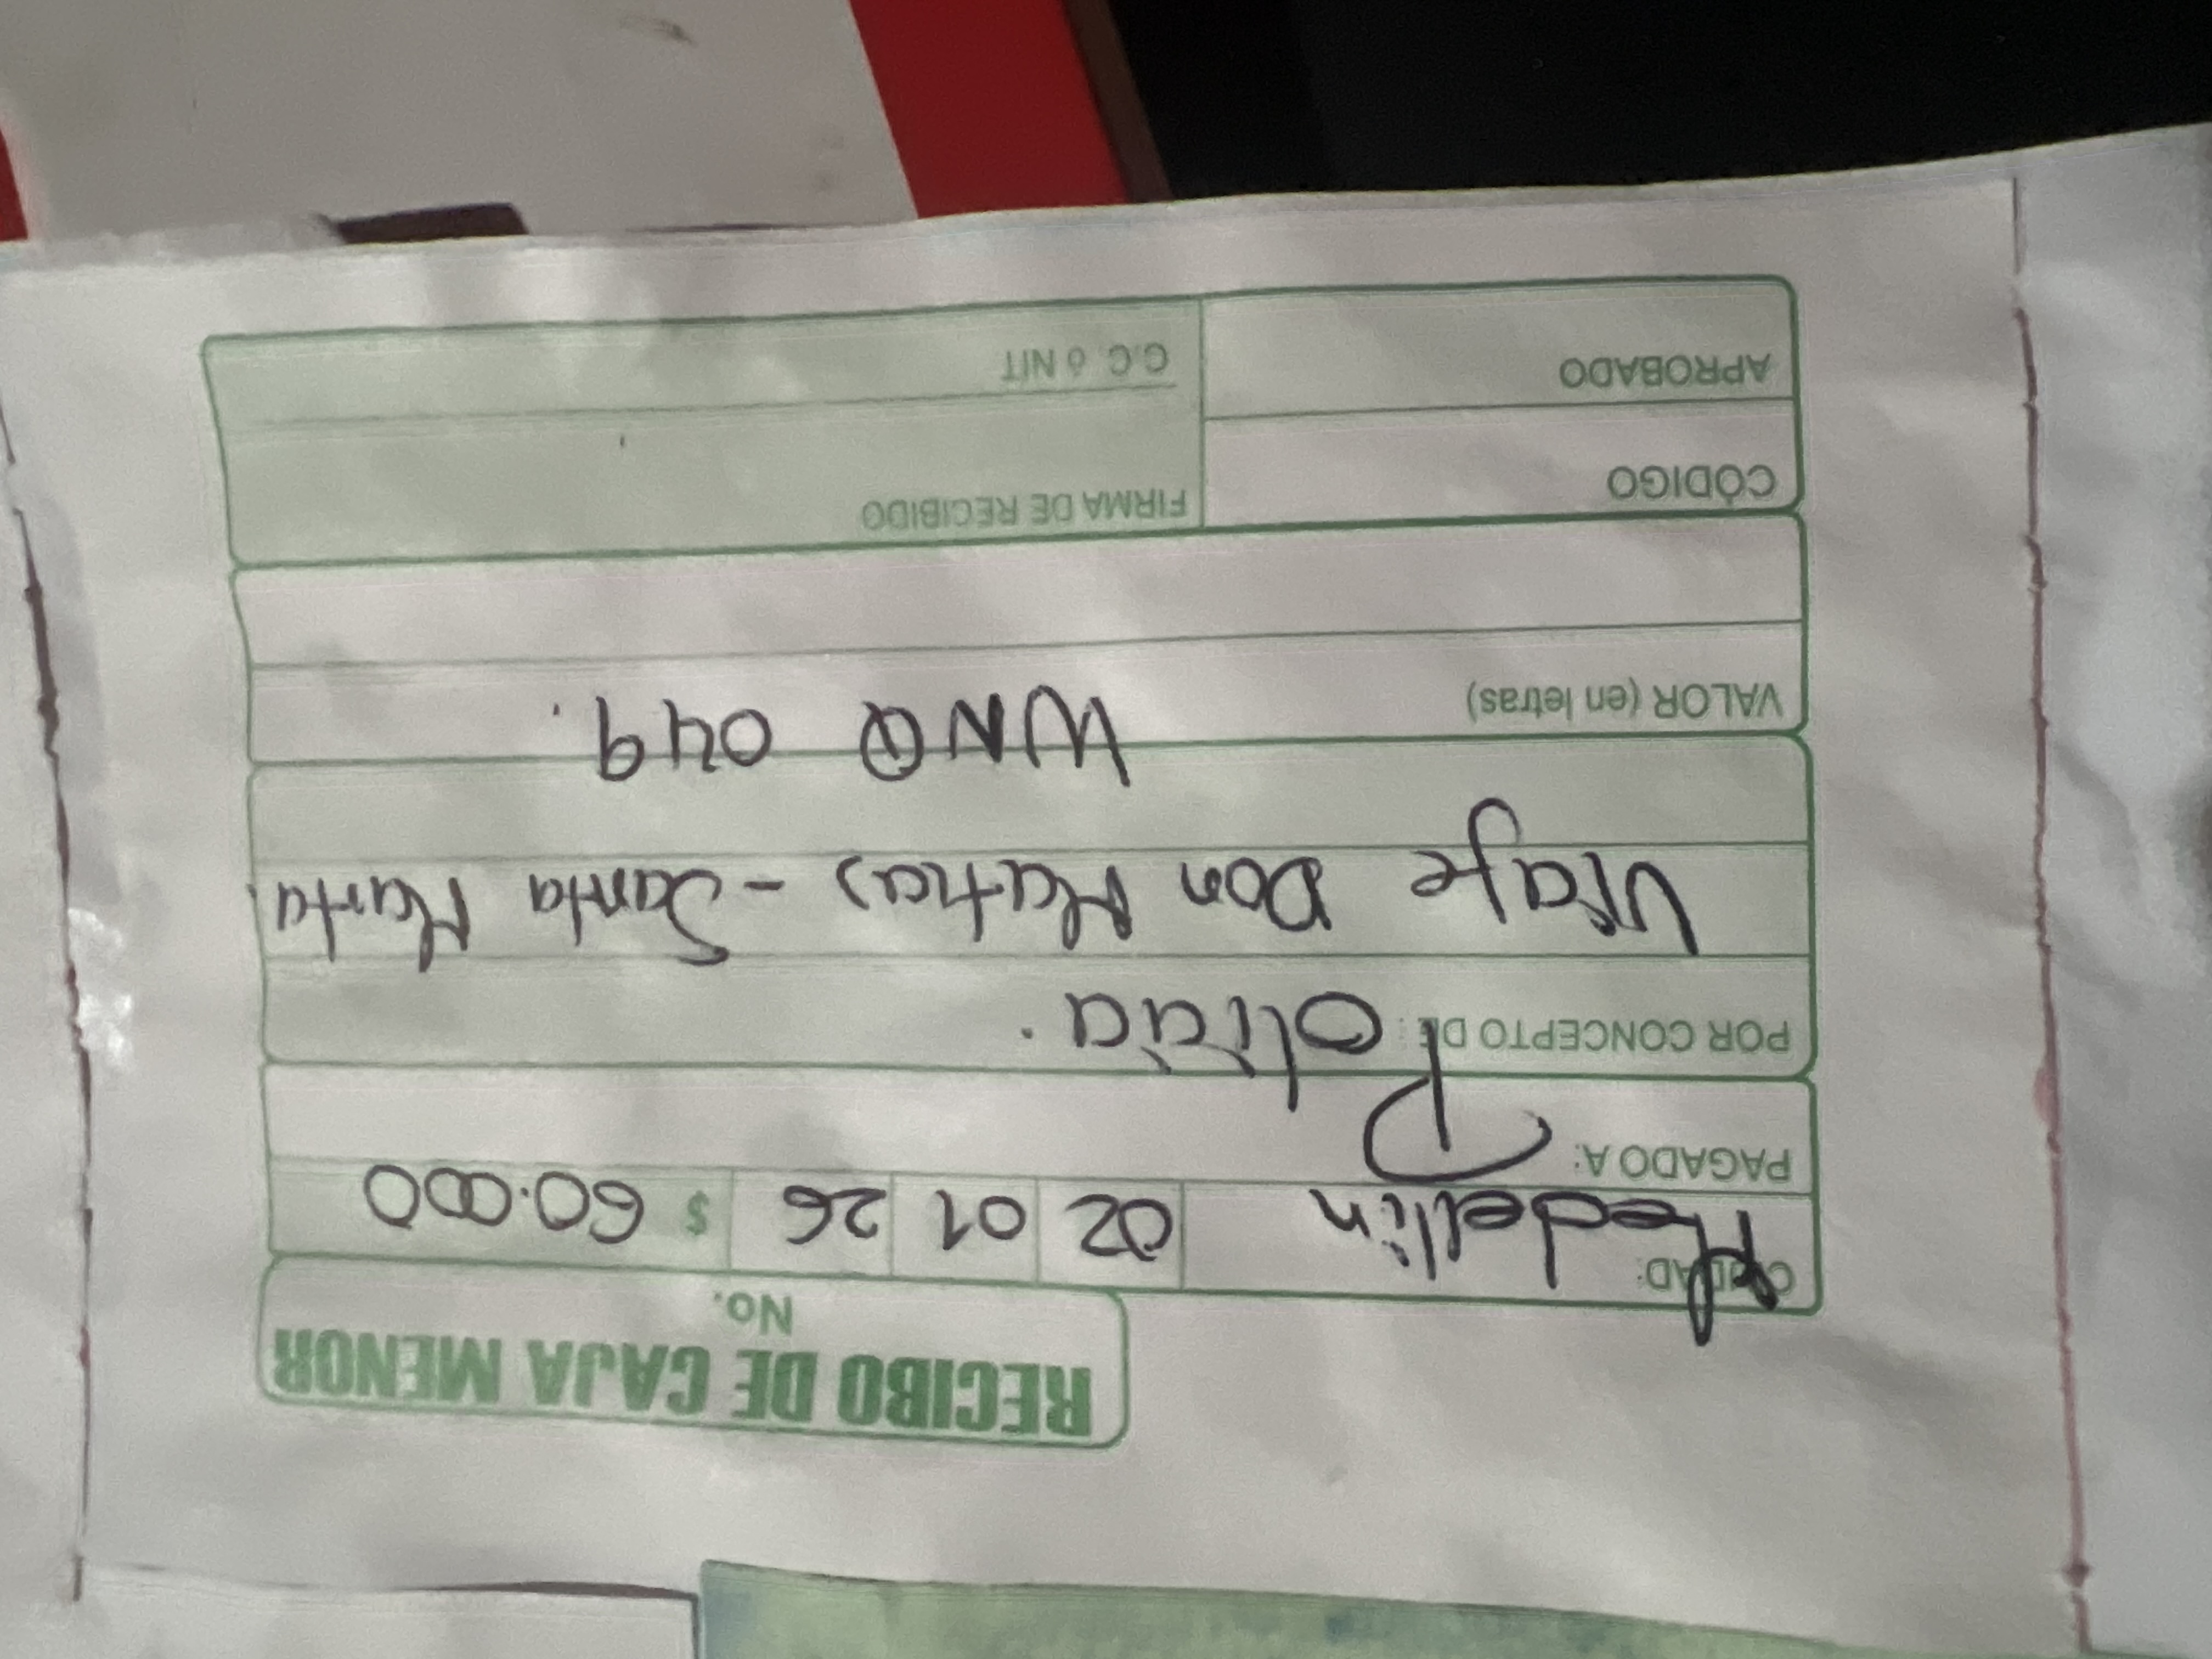 RECIBO DE CAJA MENOR
No.
CIUDAD: Medellin 02 01 26 $ 60.000
PAGADO A:
Policia.
POR CONCEPTO DE:
Viaje Don Matias - Santa Marta.
WNQ 049.
VALOR (en letras)
CÓDIGO
FIRMA DE RECIBIDO
APROBADO
C.C. ó NIT